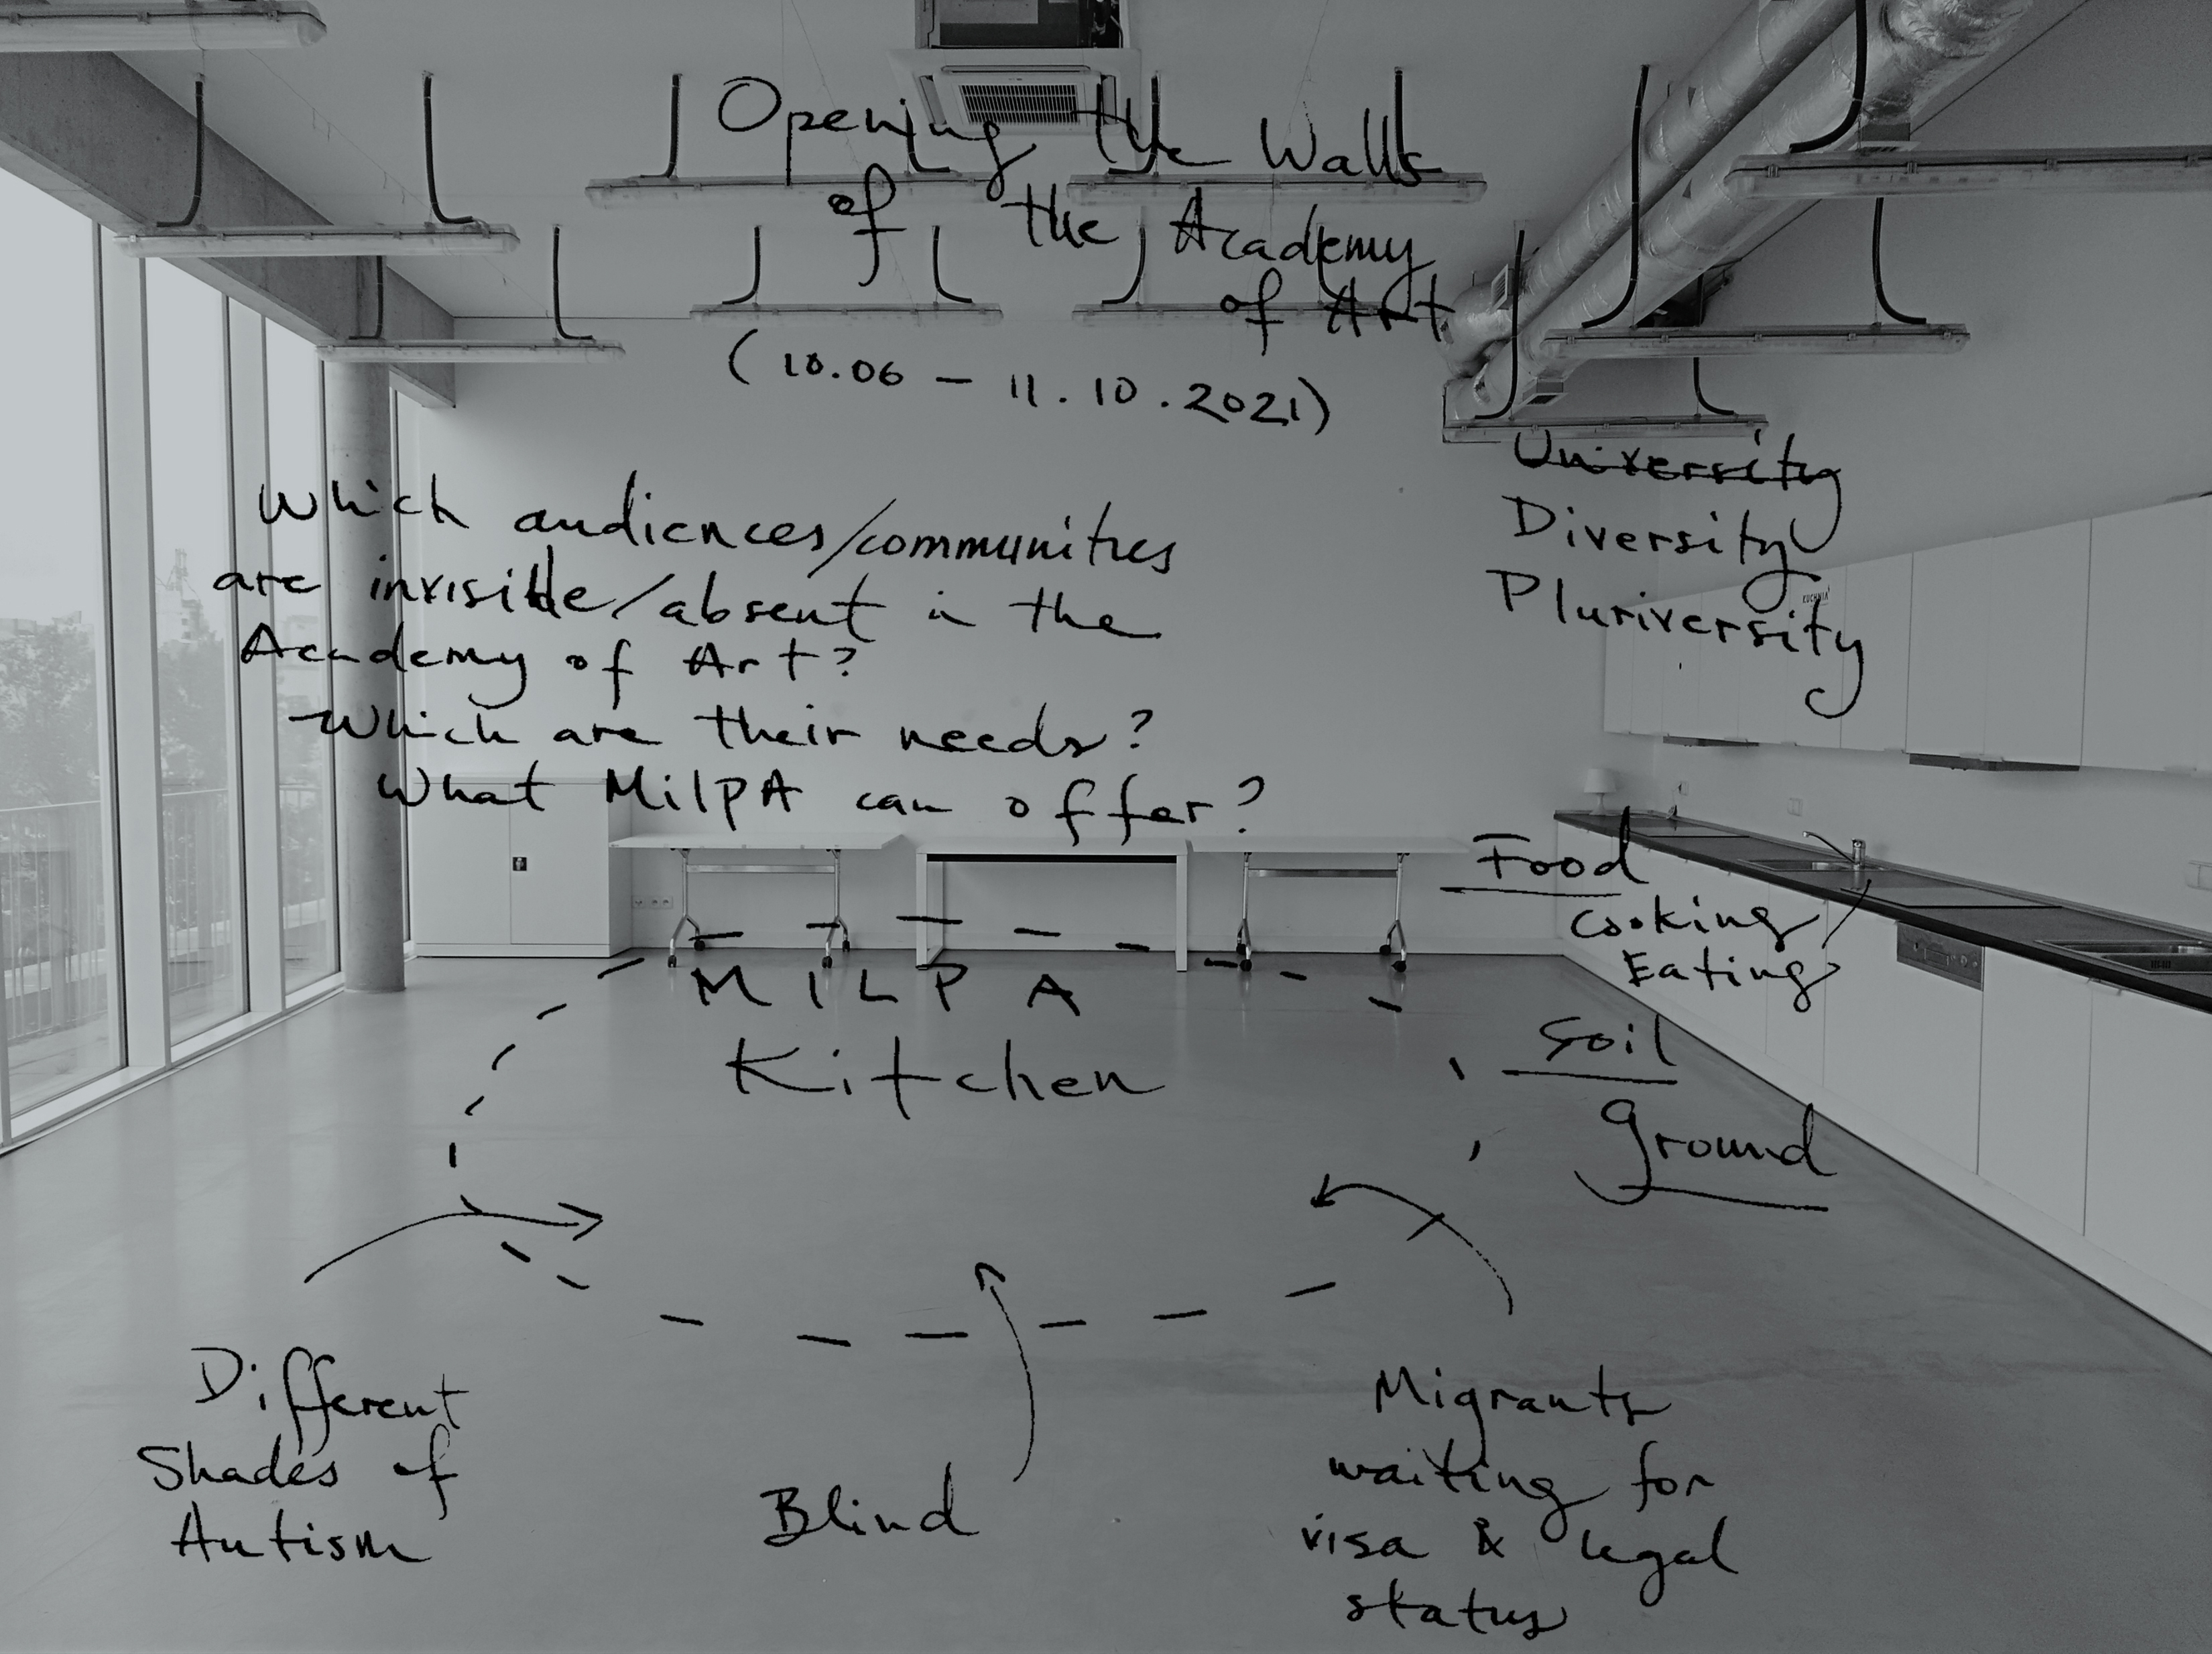 Opening the Walls
of the Academy
of Art
(10.06 – 11.10.2021)
University
Diversity
Pluriversity
KUCHNIA
Which audiences/communities
are invisible/absent in the
Academy of Art?
Which are their needs?
What MilpA can offer?
Food
Cooking
Eating
MILPA
Kitchen
Soil
ground
Different
Shades of
Autism
Blind
Migrants
waiting for
visa & legal
status